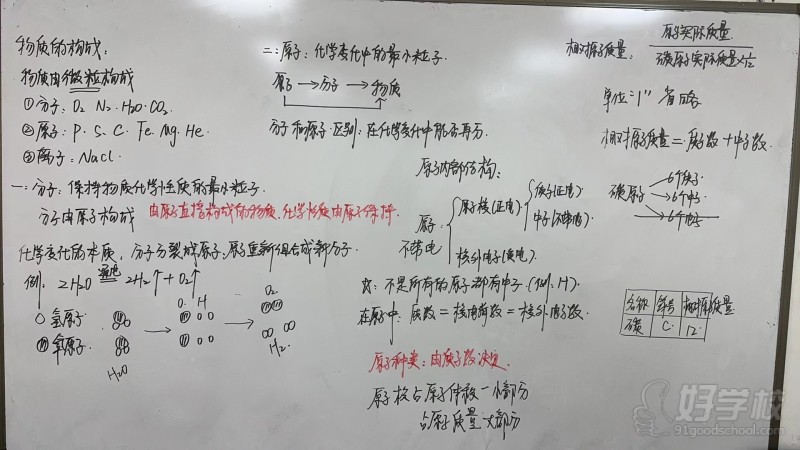 物质的构成:
物质由微粒构成
①分子: O₂ N₂ H₂O CO₂.
②原子: P. S. C. Fe. Mg. He.
③离子: Nacl.
一:分子: 保持物质化学性质的最小粒子.
分子由原子构成 由原子直接构成的物质,化学性质由原子保持.
化学变化的本质, 分子分裂成原子,原子重新组合成新分子.
例: 2H₂O 通电 2H₂↑ + O₂↑
氢原子.
氧原子.
H₂O
O H
O₂
H₂.
二:原子: 化学变化中的最小粒子.
原子 → 分子 → 物质
分子和原子.区别: 在化学变化中能否再分.
原子内部结构:
原子 不带电
原子核(正电)
质子(正电)
中子(不带电)
核外电子(负电)
不是所有的原子都有中子.(例: H).
在原子中: 质数 = 核电荷数 = 核外电子数.
原子种类: 由质子数决定.
原子核占原子体积一小部分
占原子质量大部分
相对原子质量: 原子实际质量
碳原子实际质量×1/12
单位"1" 省略
相对原子质量 = 质子数 + 中子数.
碳原子
6个质子
6个中子
6个电子
名称 符号 相对原子质量
碳 C 12
好学校
91goodschool.com